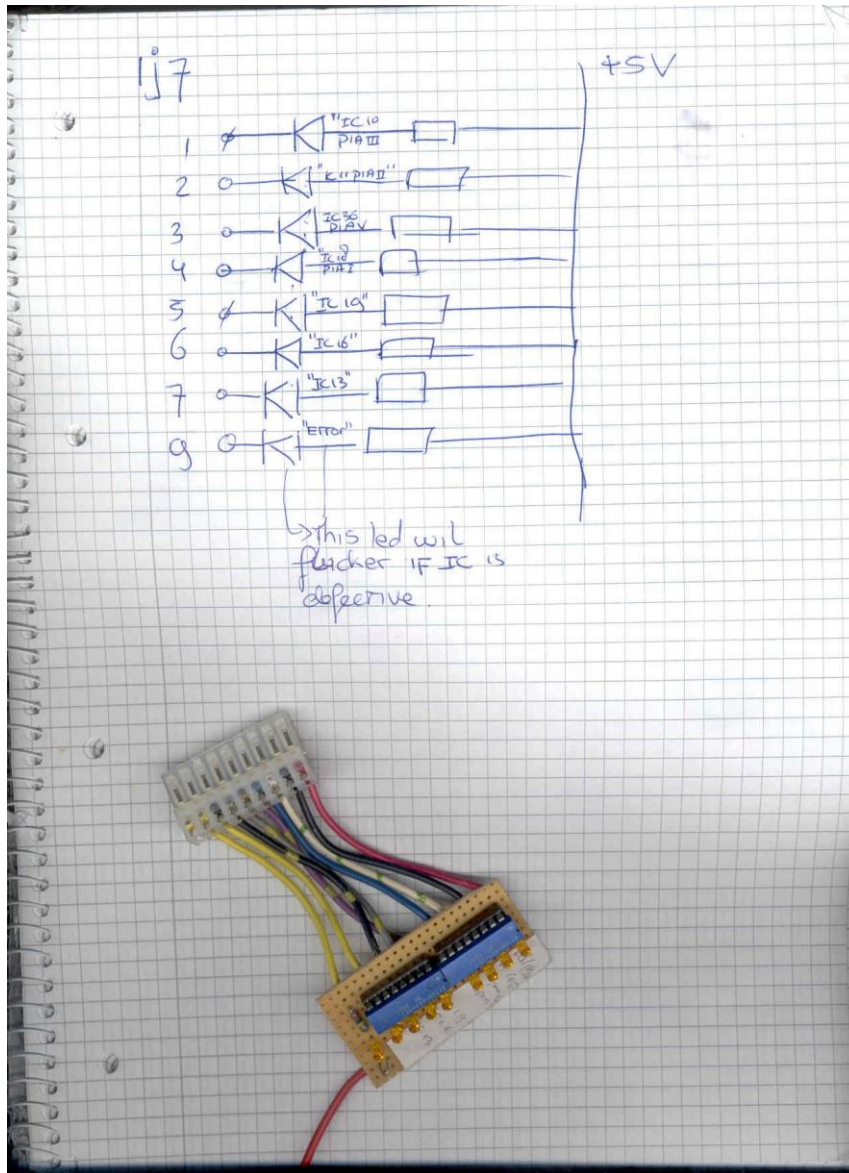 1j7
+5V
1 "IC10
PIA III
2 "IC11 PIA II"
3 IC36
PIA V
4 "IC18
PIA I
5 "IC19"
6 "IC16"
7 "IC13"
9 "Error"
This led wil
flicker IF IC is
defective.